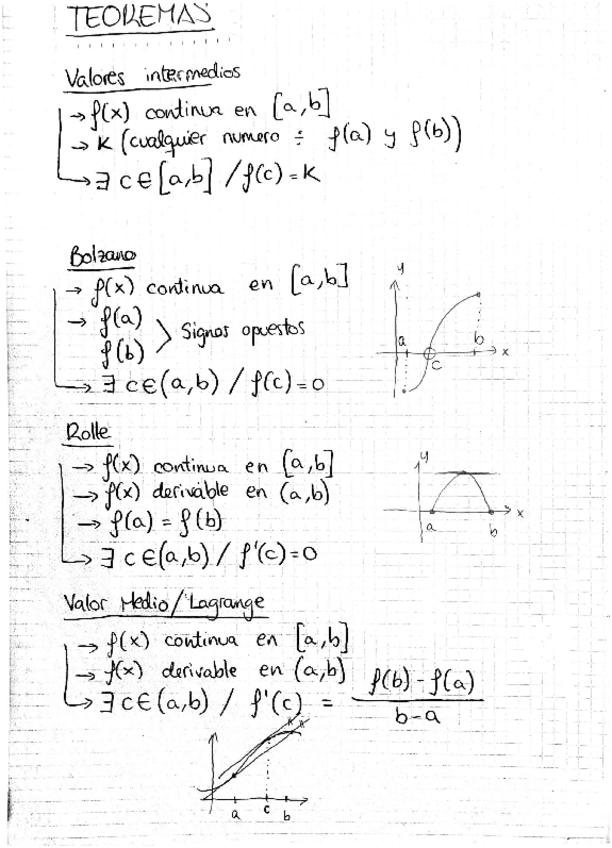 TEOREMAS
Valores intermedios
→ f(x) continua en [a,b]
→ K (cualquier numero ÷ f(a) y f(b))
→ ∃ c∈[a,b] / f(c)=K
Bolzano
→ f(x) continua en [a,b]
→ f(a)
f(b) > Signos opuestos
→ ∃ c∈(a,b) / f(c)=0
y
a
b
x
c
Rolle
→ f(x) continua en [a,b]
→ f(x) derivable en (a,b)
→ f(a) = f(b)
→ ∃ c∈(a,b) / f'(c)=0
y
x
a
b
Valor Medio/Lagrange
→ f(x) continua en [a,b]
→ f(x) derivable en (a,b)
→ ∃ c∈(a,b) / f'(c) = f(b)-f(a)
b-a
a
c
b